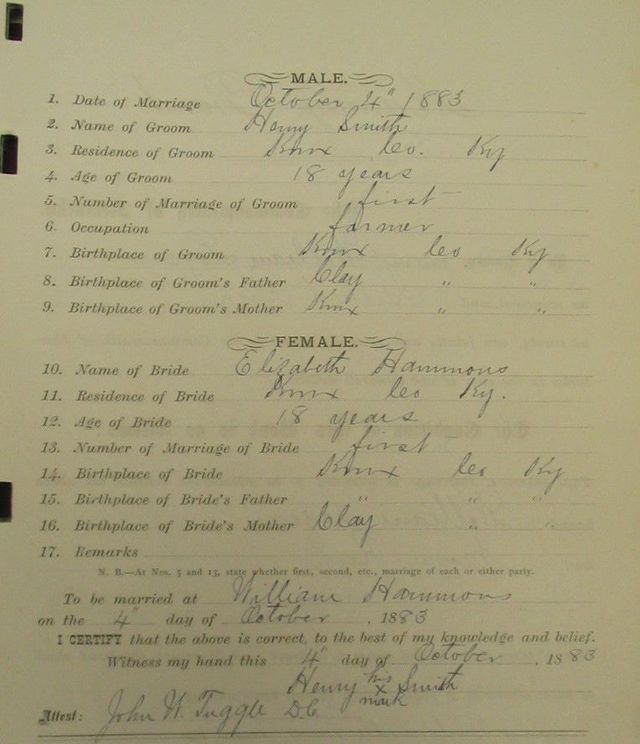 MALE.
1. Date of Marriage October 4" 1883
2. Name of Groom Henry Smith
3. Residence of Groom Knox Co. Ky
4. Age of Groom 18 years
5. Number of Marriage of Groom first
6. Occupation farmer
7. Birthplace of Groom Knox Co Ky
8. Birthplace of Groom's Father Clay " "
9. Birthplace of Groom's Mother Knox " "
FEMALE.
10. Name of Bride Elizabeth Hammons
11. Residence of Bride Knox Co Ky.
12. Age of Bride 18 years
13. Number of Marriage of Bride first
14. Birthplace of Bride Knox Co Ky
15. Birthplace of Bride's Father " " "
16. Birthplace of Bride's Mother Clay " "
17. Remarks
N. B.—At Nos. 5 and 13, state whether first, second, etc., marriage of each or either party.
To be married at William Hammons
on the 4" day of October , 1883
I CERTIFY that the above is correct, to the best of my knowledge and belief.
Witness my hand this 4" day of October , 1883
Henry his x mark Smith
Attest: John W. Tuggle D.C